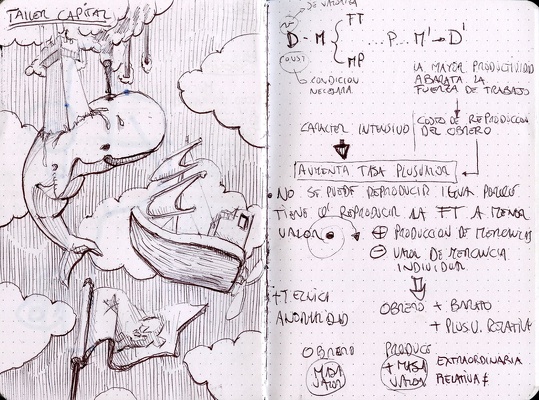 TALLER CAPITAL
DE
FT
D - M
... P ... M' → D'
MP
CONST
CONDICION
NECESARIA
LA MAYOR PRODUCTIVIDAD
ABARATA LA
FUERZA DE TRABAJO
CARACTER INTENSIVO
COSTO DE REPRODUCCION
DEL OBRERO
AUMENTA TASA PLUSVALOR
• NO SE PUEDE REPRODUCIR
TIENE REPRODUCIR LA FT A MENOR
VALOR
⊕ PRODUCCION DE MERCANCIAS
⊖ VALOR DE MERCANCIA
INDIVIDUAL
OBRERO + BARATO
+ PLUSV. RELATIVA
+ TECNICA
OBRERO
MASA
VALOR
PRODUCE
+ MASA
VALOR
EXTRAORDINARIA
RELATIVA